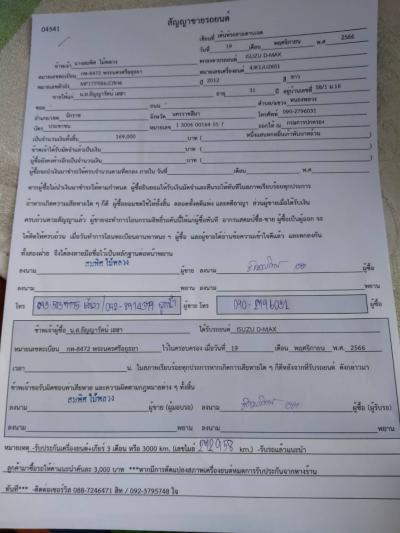 สัญญาขายรถยนต์
04541
เขียนที่ เต็นท์รถสายตาบเอด
วันที่ 19 เดือน พฤศจิกายน พ.ศ 2566
ข้าพเจ้า นางสมพิศ ไม้พลวง ISUZU D-MAX
หมายเลขทะเบียน กท-8472 พระนครศรีอยุธยา หมายเลขเครื่องยนต์
หมายเลขตัวถัง ปี 2012 สี ขาว
ขายให้แก่ น.ส.ธัญญารัตน์ เสสา อายุ 31 ปี อยู่บ้านเลขที่ 58/1 ม.16
ซอย - ถนน - ตำบล/แขวง หนองพลวง
อำเภอ/เขต จักราช จังหวัด นครราชสีมา โทรศัพท์ 090-2796031
บัตร ประชาชน หมายเลข 1 3006 00164 55 7 ออกให้ ณ กรมการปกครอง
เป็นจำนวนเงินทั้งสิ้น 169,000 บาท ( หนึ่งแสนหกหมื่นเก้าพันบาทถ้วน )
ข้าพเจ้าได้รับมัดจำแล้วเป็นเงิน บาท ( )
ผู้ซื้อยังคงค้างอีกเป็นจำนวนเงิน บาท ( )
ผู้ซื้อจะนำเงินมาชำระให้ครบจำนวนตามที่ตกลง ภายใน วันที่ เดือน พ.ศ
หากผู้ซื้อไม่นำเงินมาชำระให้ตามกำหนด ผู้ซื้อยินยอมให้ริบเงินมัดจำและยึดรถได้ทันทีในสภาพเรียบร้อยทุกประการ
ถ้าหากเกิดความเสียหายใด ๆ ก็ดี ผู้ซื้อยอมชดใช้ให้ทั้งสิ้น ตลอดทั้งคดีแพ่ง และคดีอาญา ส่วนผู้ขายเมื่อได้รับเงิน
ครบถ้วนตามสัญญาแล้ว ผู้ขายจะทำการโอนกรรมสิทธิ์รถคันนี้ให้แก่ผู้ซื้อทันที อากรแสตมป์ซื้อ-ขาย ผู้ซื้อเป็นผู้ออก จะ
ได้ติดให้ครบถ้วน เมื่อรับทำการโอนทะเบียนยานพาหนะ ๆ ผู้ซื้อ และผู้ขายได้อ่านข้อความเข้าใจดีแล้ว และตกลงกัน
ทั้งสองฝ่าย จึงได้ลงลายมือชื่อไว้เป็นหลักฐานต่อหน้าพยาน
ลงนาม สมพิศ ไม้พลวง ผู้ขาย ลงนาม ผู้ซื้อ
ลงนาม พยาน ลงนาม พยาน
โทร ผู้ขาย โทร 090-2796031 ผู้ซื้อ
ข้าพเจ้าผู้ซื้อ น.ส.ธัญญารัตน์ เสสา ได้รับรถยนต์ ISUZU D-MAX
หมายเลขทะเบียน กท-8472 พระนครศรีอยุธยา ไว้ในครอบครอง เมื่อวันที่ 19 เดือน พฤศจิกายน พ.ศ. 2566
เวลา น. ในสภาพเรียบร้อยทุกประการหากเกิดการเสียหายใด ๆ ก็ดีหลังจากที่รับรถยนต์ ดังกล่าวมา
ข้าพเจ้าขอรับผิดชอบค่าเสียหาย และความผิดตามกฎหมายต่าง ๆ ทั้งสิ้น
ลงนาม สมพิศ ไม้พลวง ผู้ขาย (ผู้มอบรถ) ลงนาม ผู้ซื้อ (ผู้รับรถ)
ลงนาม พยาน ลงนาม พยาน
หมายเหตุ -รับประกันเครื่องยนต์+เกียร์ 3 เดือน หรือ 3000 km. (เลขไมล์ 292958 km.) -รับรถแล้วแนะนำ
ลูกค้ามาซื้อรถให้ค่าแนะนำคันละ 3,000 บาท ***หากมีการดัดแปลงสภาพเครื่องยนต์หมดการรับประกันจากทางร้าน
ทันที*** -ติดต่อเซอร์วิส 088-7246471 สิท / 092-3795748 ใจ